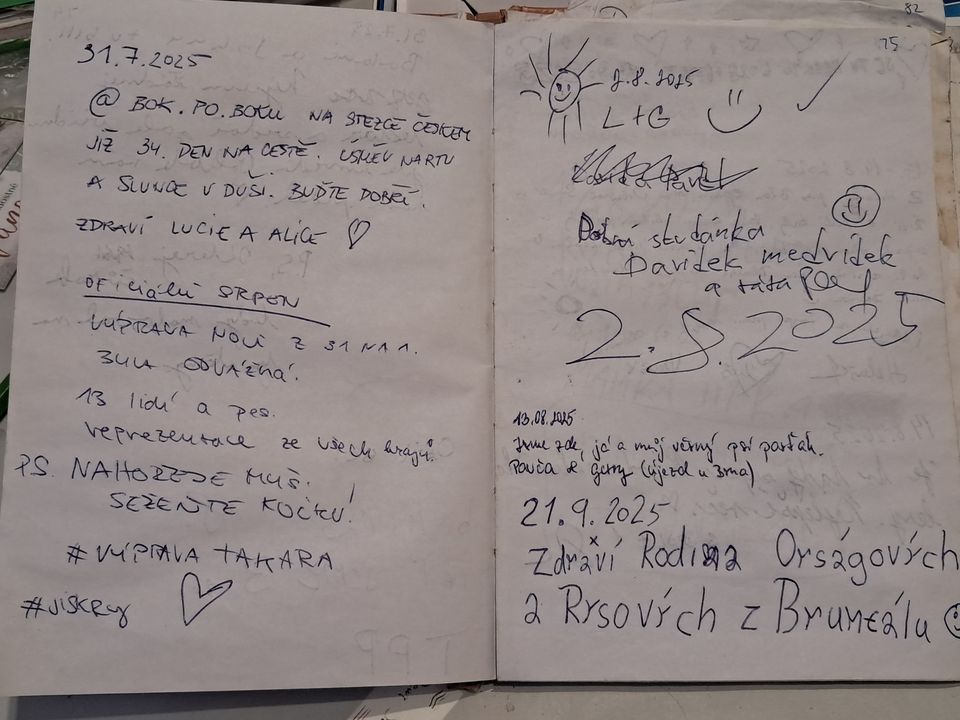 31.7.2025
@ BOK.PO.BOKU NA STEZCE ČESKEM
JIŽ 34. DEN NA CESTĚ. ÚSMĚV NA RTU
A SLUNCE V DUŠI. BUĎTE DOBŘÍ.
ZDRAVÍ LUCIE A ALICE ♡
OFICIÁLNÍ SRPEN
VÝPRAVA NOCÍ Z 31 NA 1.
BYLA ODVÁŽNÁ.
13 lidí a pes.
reprezentace ze všech krajů.
PS. NAHOŘE JE MYŠ.
SEŽEŇTE KOČKU!
#VÝPRAVA TAKARA
#JISKRY
82
75
2.8.2025
L+G
Dobrá studánka
Davídek medvídek
a táta
2.8.2025
13.08.2025
Jsme zde, já a můj věrný psí parťák.
(Újezd u Brna)
21.9.2025
Zdraví Rodina Országových
a Rysových z Bruntálu